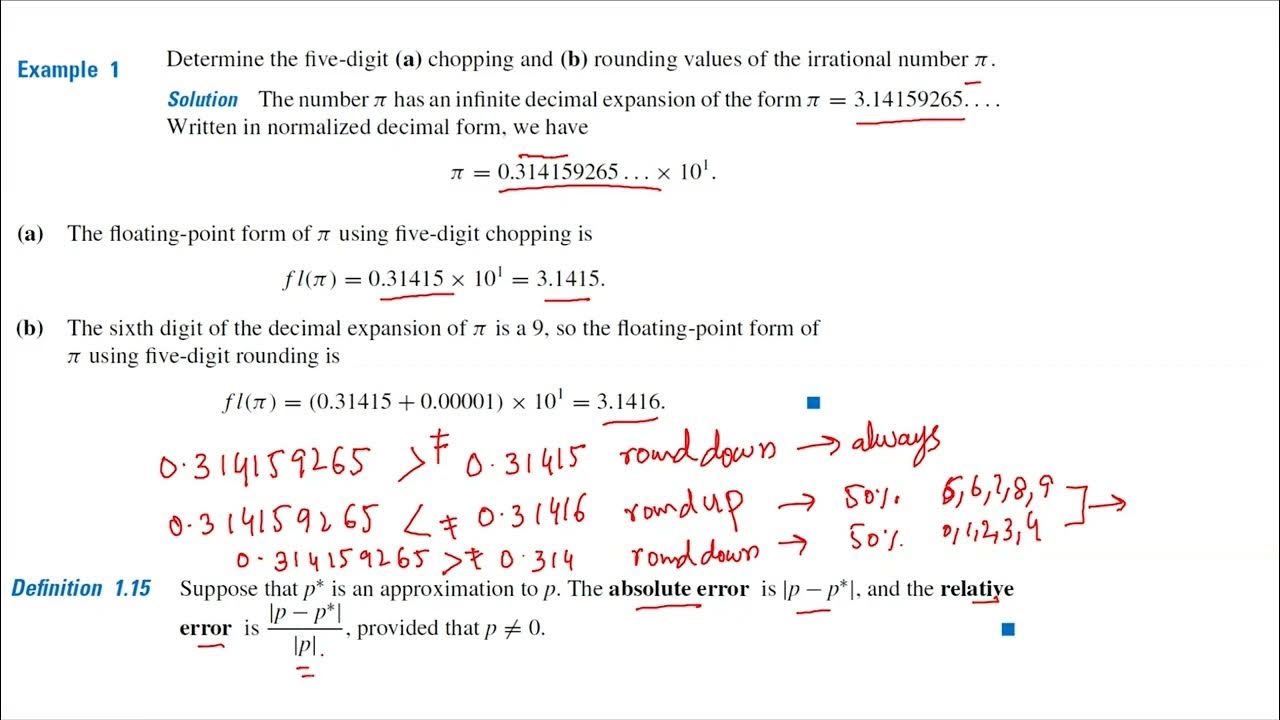 Example 1 Determine the five-digit (a) chopping and (b) rounding values of the irrational number π.
Solution The number π has an infinite decimal expansion of the form π = 3.14159265. . . .
Written in normalized decimal form, we have
π = 0.314159265 . . . × 10¹.
(a) The floating-point form of π using five-digit chopping is
fl(π) = 0.31415 × 10¹ = 3.1415.
(b) The sixth digit of the decimal expansion of π is a 9, so the floating-point form of
π using five-digit rounding is
fl(π) = (0.31415 + 0.00001) × 10¹ = 3.1416.
0.314159265 > ≠ 0.31415 round down → always
0.314159265 < ≠ 0.31416 round up → 50% 5,6,7,8,9
0.314159265 > ≠ 0.314 round down → 50% 0,1,2,3,4 ] →
Definition 1.15 Suppose that p* is an approximation to p. The absolute error is |p − p*|, and the relative
error is |p − p*| / |p|, provided that p ≠ 0.